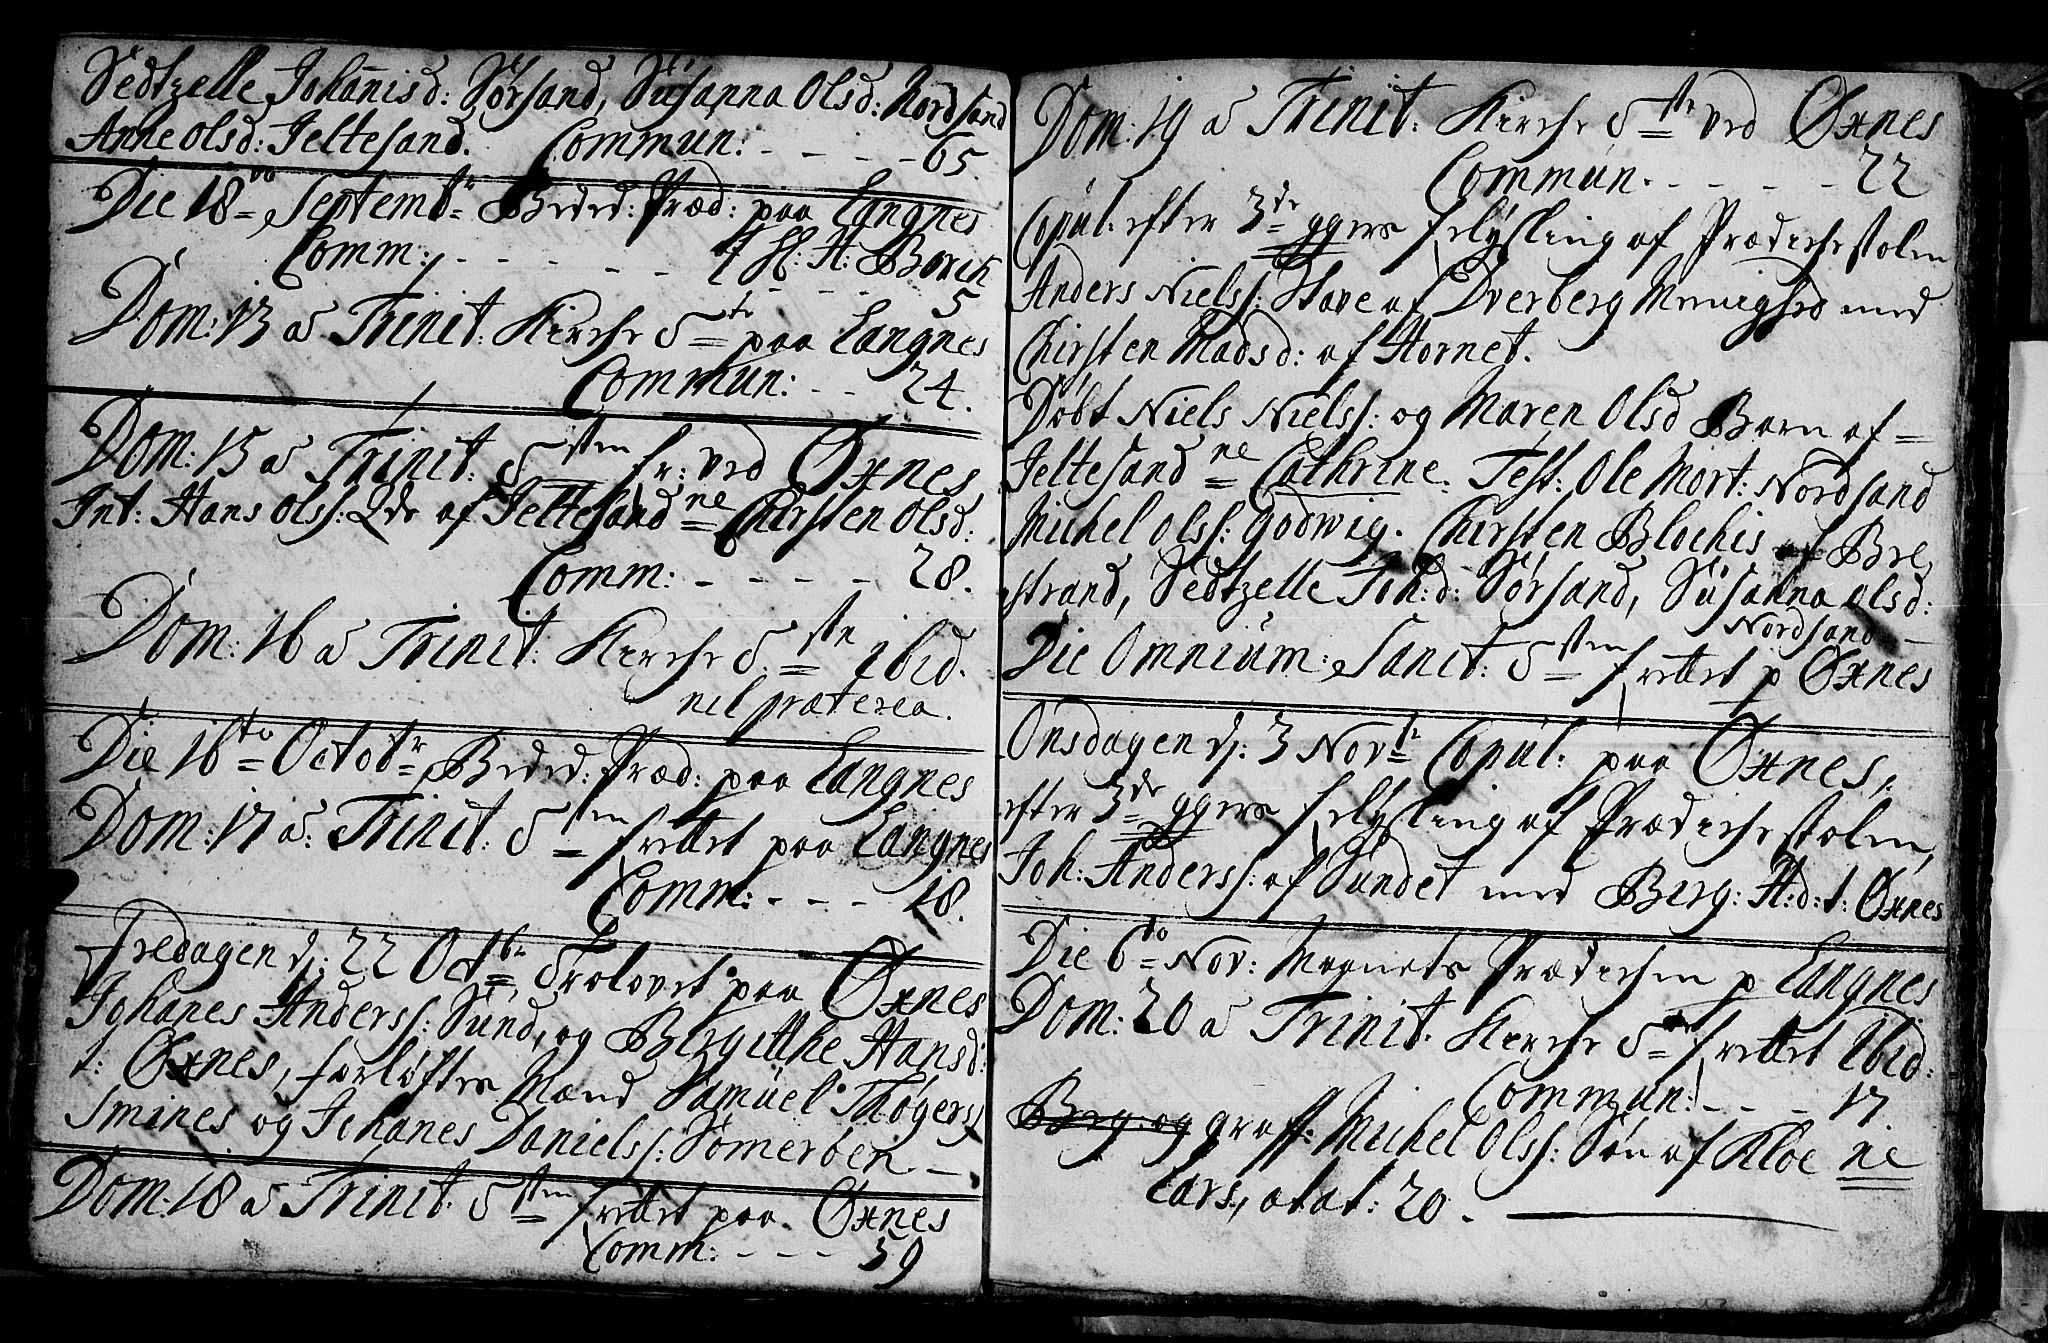 Sedtzelle Johanisd: Sørsand, Susanna Olsd: Nordsand
Anne Olsd: Jeltesand. Commun: - - - - 65.
Die 18do Septembr Beded: Præd: paa Langnes
Comm: - - - - - 4 Sl: H: Borch
- - - 5
Dom: 13 a Trinit: Kirche d te paa Langnes
Commun: - - 24.
Dom: 15 a Trinit: d sten fr: ved Øxnes
Int: Hans Olss: Qde af Jeltesand ne Chirsten Olsd:
Comm: - - - - 28.
Dom: 16 a Trinit: Kirche d. ste ibid.
nil præterea.
Die 16to Octobr Beded: Præd: paa Langnes
Dom: 17 a: Trinit: d sten frettet paa Langnes
Comm: - - - 18.
Fredagen dj: 22 Octbr Trolovet paa Øxnes
Johanes Anderss: Sund, og Birgitthe Hansd:
t: Øxnes, forløftes Mænd Samuel Thøgerss
Smines og Johanes Danielss: Somerben —
Dom: 18 a Trinit: d sten frettet paa Øxnes
Comm: - - - 59
Dom: 19 a Trinit: Kirche d ste ved Øxnes
Commun. - - - - 22
Copul: efter 3de ggers felysling af Prædichestolen
Anders Nielss: Stave af Dverberg Menighed med
Chirsten Madsd: af Hornet.
Døbt Niels Nielss: og Maren Olsd Barn af
Jeltesand ne Cathrine. Test: Ole Mort: Nordsand
Michel Olss: Godwig. Chirsten Blochis af Bre,
strand, Sedtzelle Joh:d: Sørsand, Susanna Olsd:
Nordsand —
Die Omnium Sanct: d sten frettet p Øxnes
Onsdagen dj: 3 Novbr Copul: paa Øxnes,
efter 3de ggers felysling af Prædichestolen,
Joh: Anderss: af Sundet med Berg: H:d: t: Øxnes
Die 6to Nov: Maanets Prædichen p Langnes
Dom: 20 a Trinit. Kirche d te frettet Ibid:
Commun: - - - 17.
Beg: og graff: Michel Olss: Søn af Kloe ne
Lars, ætat: 20.